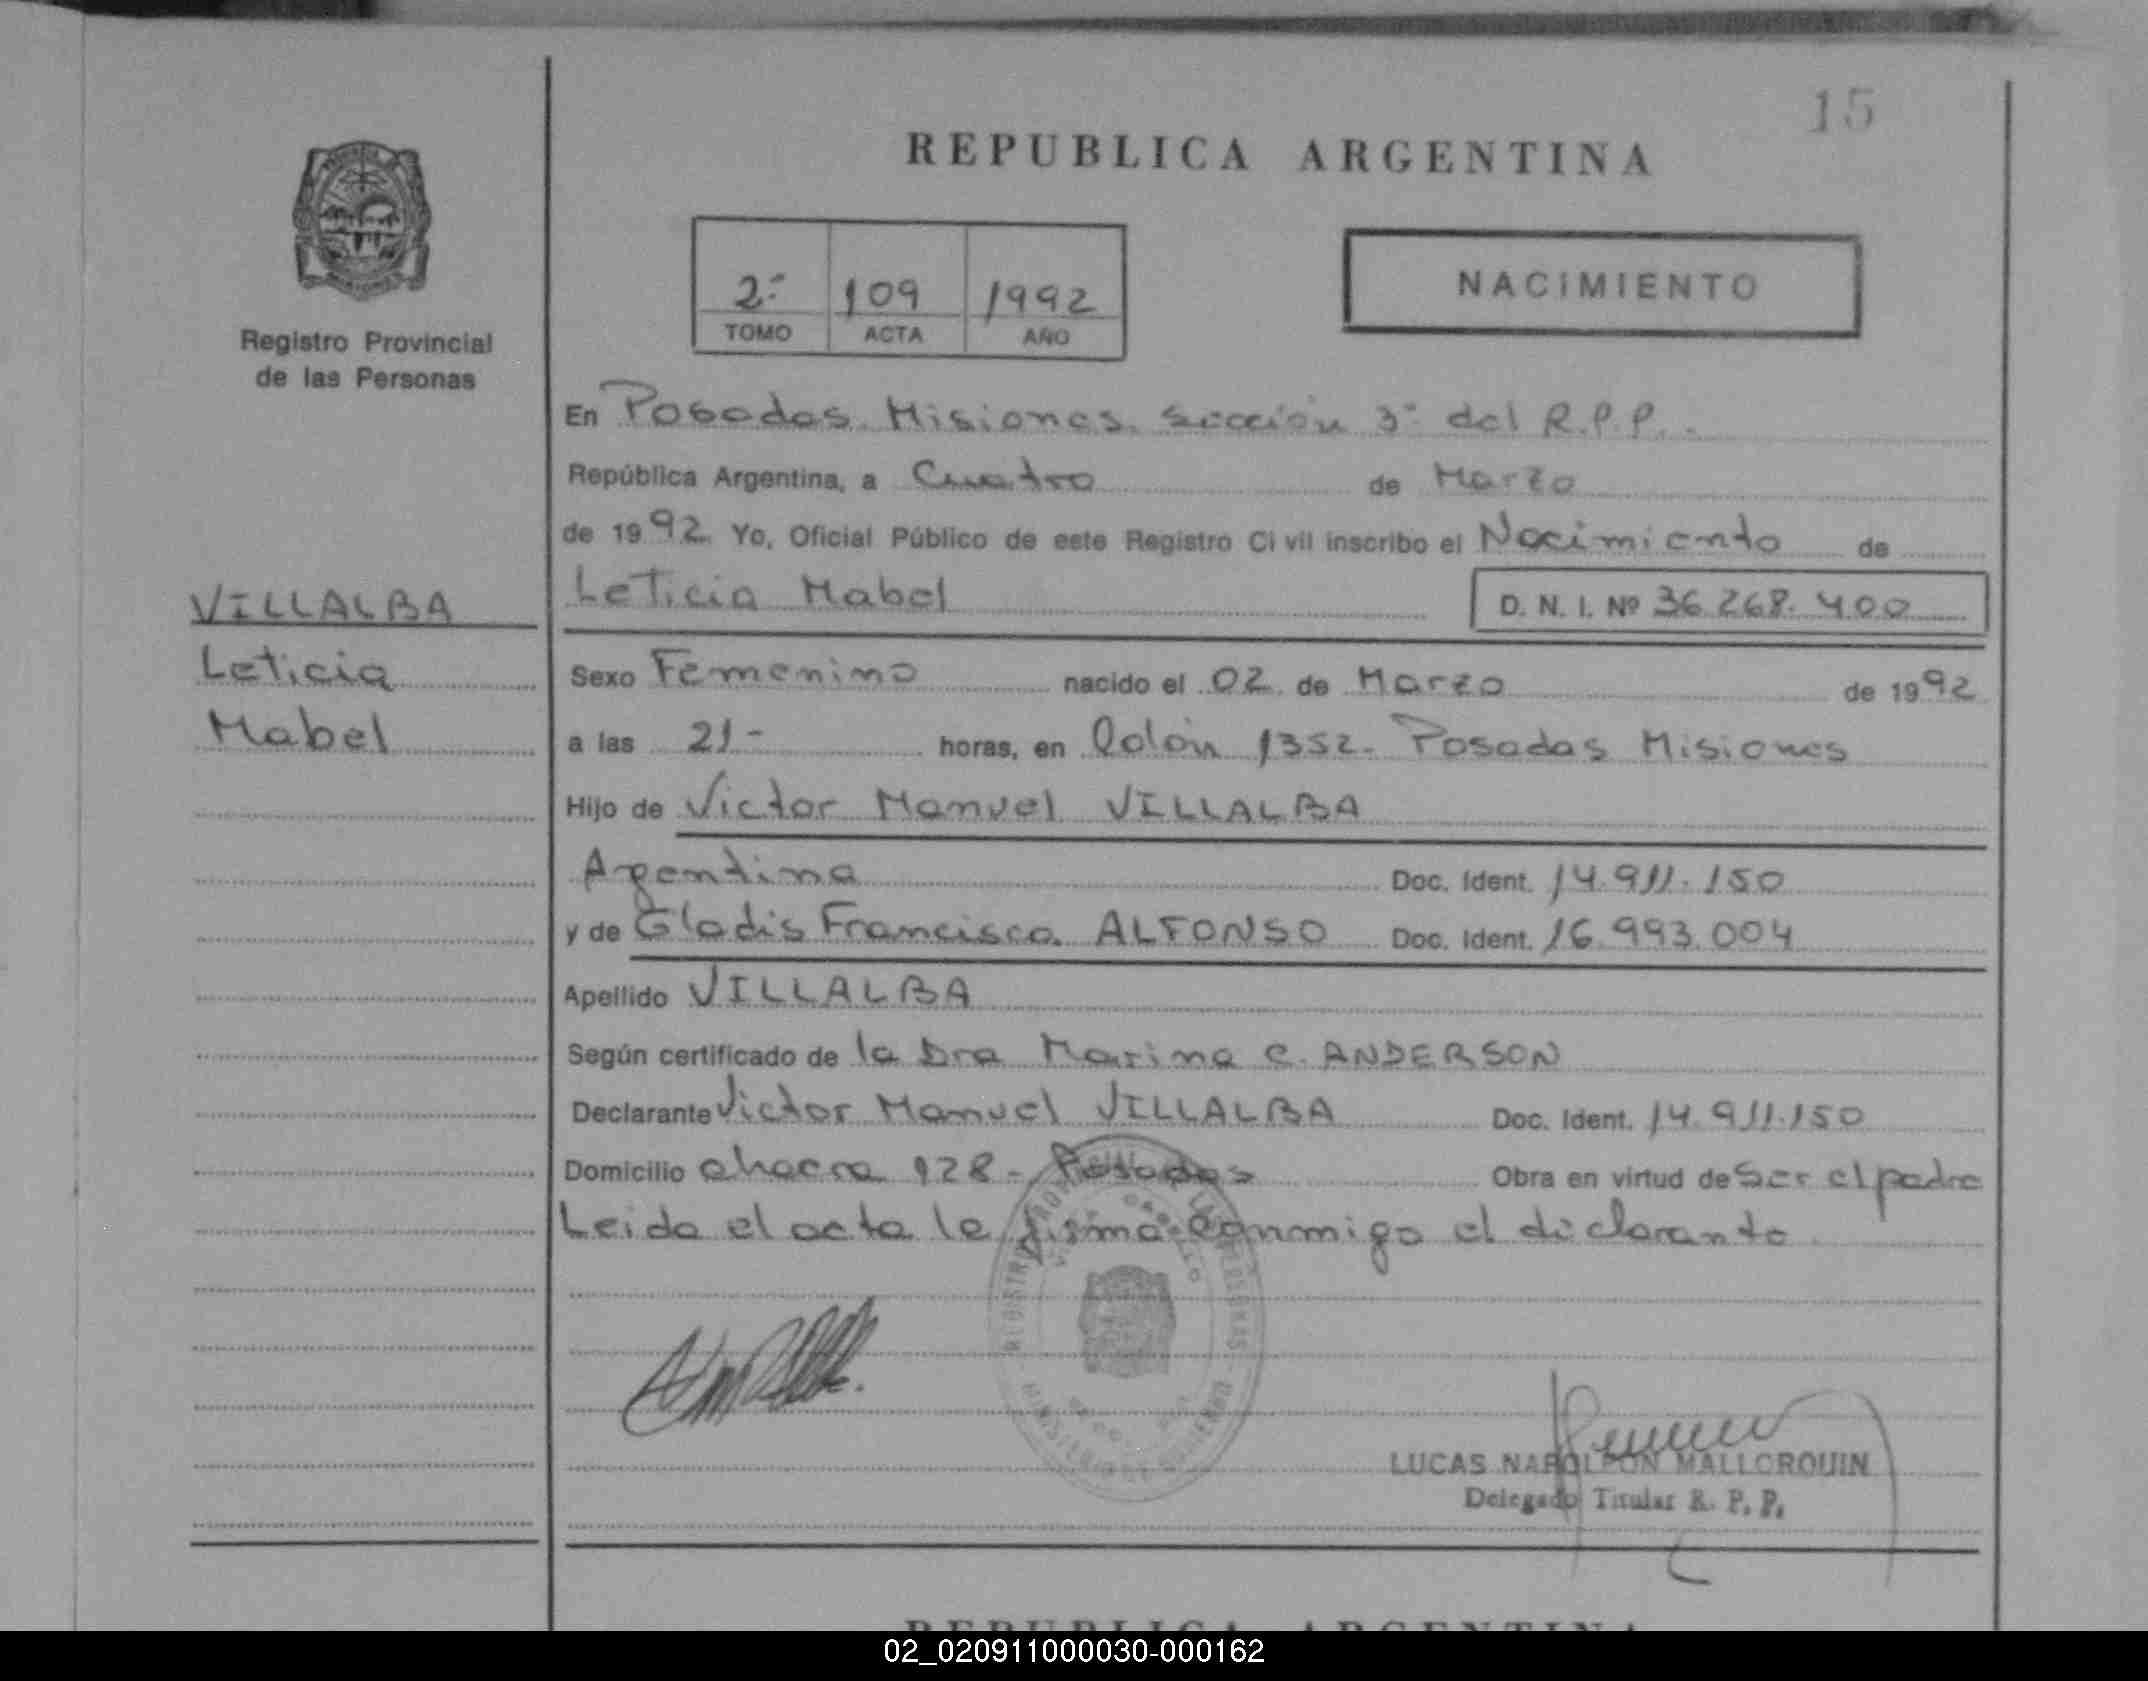 15
REPUBLICA ARGENTINA
2º 109 1992
TOMO ACTA AÑO
NACIMIENTO
Registro Provincial
de las Personas
VILLALBA
Leticia
Mabel
En Posadas Misiones. sección 3º del R.P.P..
República Argentina, a Cuatro de Marzo
de 1992. Yo, Oficial Público de este Registro Civil inscribo el Nacimiento de
Leticia Mabel D. N. I. Nº 36.268.400
Sexo Femenino nacido el 02 de Marzo de 1992
a las 21- horas, en Colón 1352. Posadas Misiones
Hijo de Victor Manuel VILLALBA
Argentina Doc. Ident. 14.911.150
y de Gladis Francisca ALFONSO Doc. Ident. 16.993.004
Apellido VILLALBA
Según certificado de la Dra Marina C. ANDERSON
Declarante Victor Manuel VILLALBA Doc. Ident. 14.911.150
Domicilio chacra 128- Posadas Obra en virtud de ser el padre
Leida el acta la firma conmigo el declarante
REGISTRO PROVINCIAL DE LAS PERSONAS
MINISTERIO DE GOBIERNO
LUCAS NAPOLEON MALLORQUIN
Delegado Titular R. P. P.
REPUBLICA ARGENTINA
02_020911000030-000162